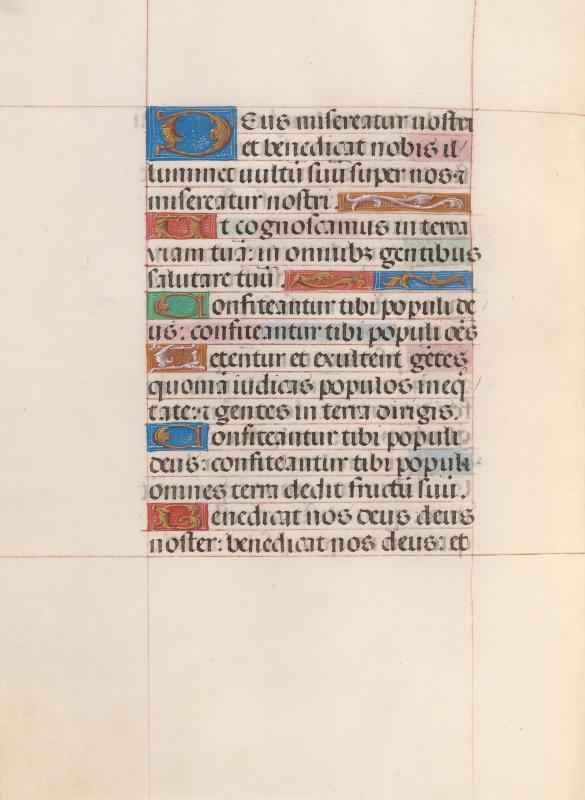 Deus misereatur nostri
et benedicat nobis il/
luminet uultū suū super nos ⁊
misereatur nostri
Ut cognoscamus in terra
viam tuā: in omnibꝫ gentibus
salutare tuū
Confiteantur tibi populi de
us: confiteantur tibi populi oēs
Letentur et exultent gētes
quoniā iudicas populos in eq̄
tate: ⁊ gentes in terra dirigis.
Confiteantur tibi populi
deus: confiteantur tibi populi
omnes terra dedit fructū suū.
Benedicat nos deus deus
noster: benedicat nos deus: et